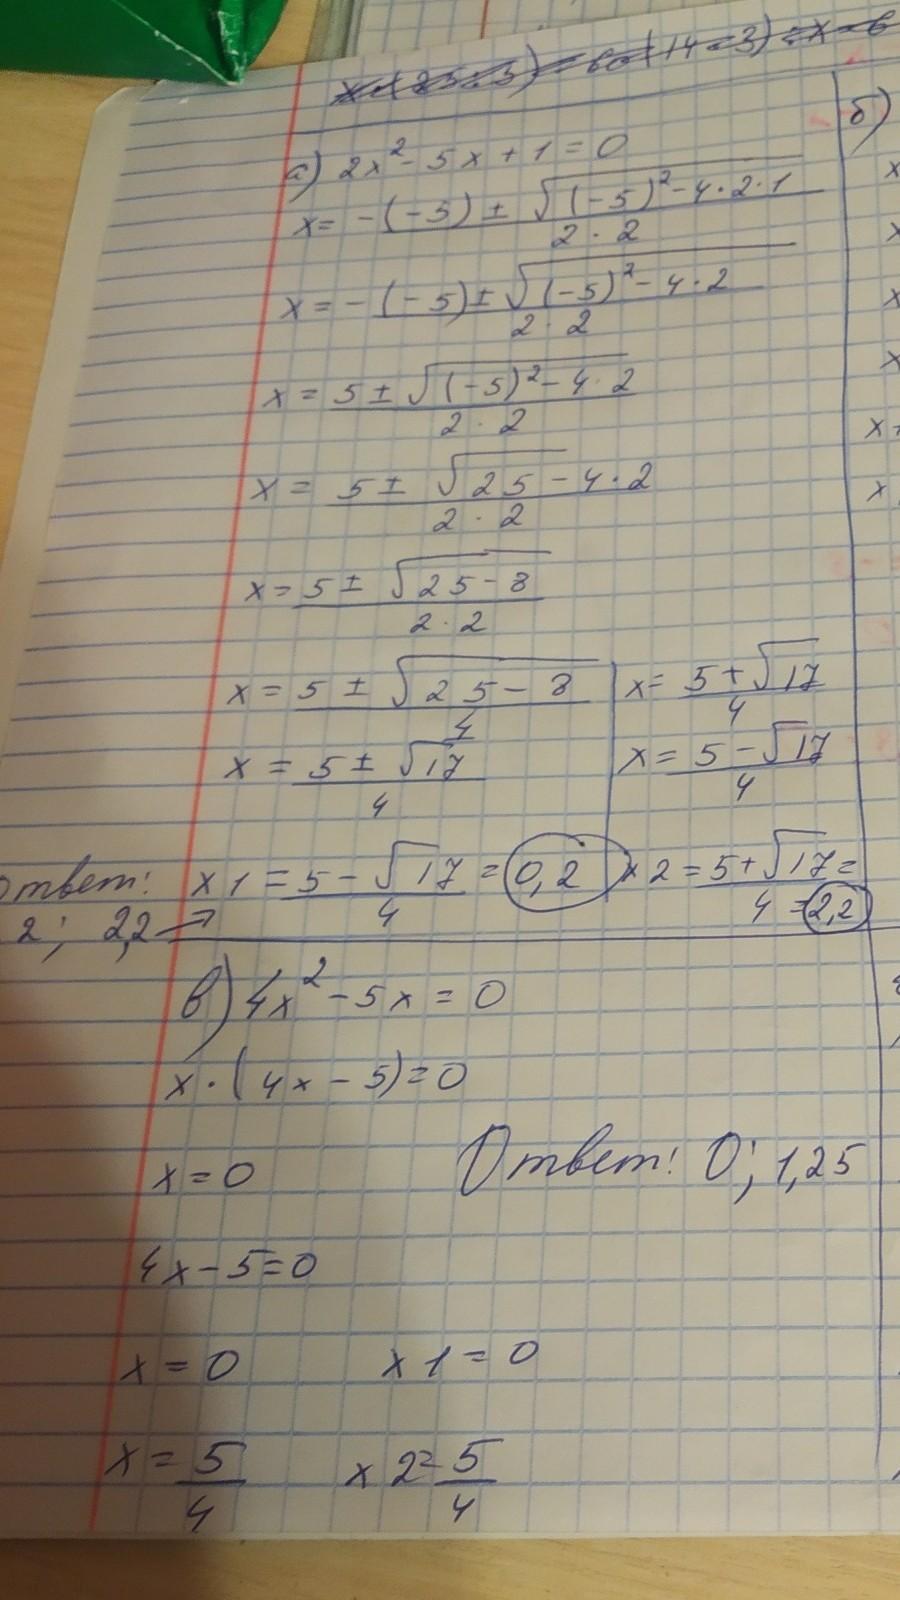 б)
а) 2x² - 5x + 1 = 0
x = -(-5) ± √(-5)² - 4·2·1 / 2·2
x = -(-5) ± √(-5)² - 4·2 / 2·2
x = 5 ± √(-5)² - 4·2 / 2·2
x = 5 ± √25 - 4·2 / 2·2
x = 5 ± √25 - 8 / 2·2
x = 5 ± √25 - 8 / 4
x = 5 ± √17 / 4
x = 5 + √17 / 4
x = 5 - √17 / 4
x1 = 5 - √17 / 4 = 0,2
x2 = 5 + √17 / 4 = 2,2
Ответ:
2; 2,2 →
в) 4x² - 5x = 0
x · (4x - 5) = 0
x = 0
Ответ: 0; 1,25
4x - 5 = 0
x = 0 x1 = 0
x = 5/4 x2 = 5/4